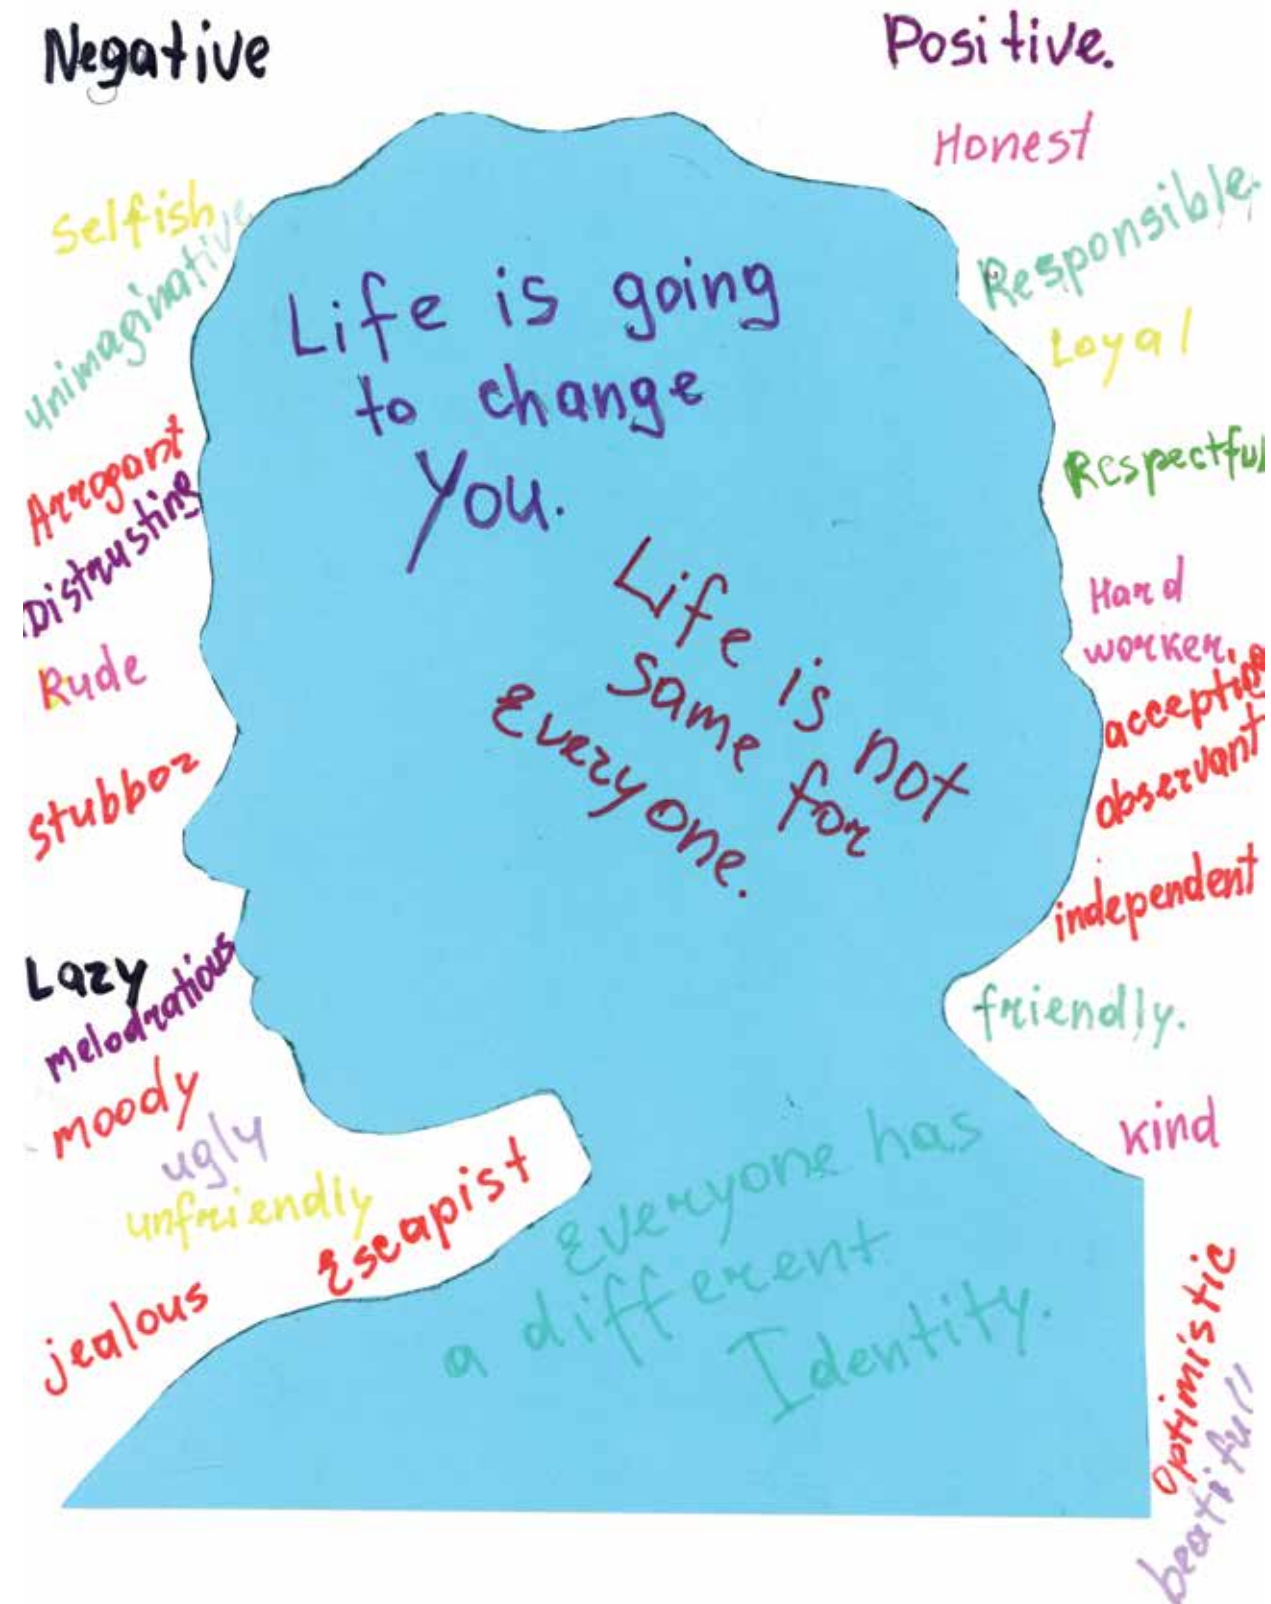 Negative
Selfish
unimaginative
Arrogant
Distrusting
Rude
stubbor
Lazy
melodratious
moody
ugly
unfriendly
Escapist
jealous
Life is going
to change
You.
Life is not
same for
Everyone.
Everyone has
a different
Identity.
Positive.
Honest
Responsible.
Loyal
Respectful
Hard
worker.
accepting
observant
independent
friendly.
kind
Optimistic
beatifull